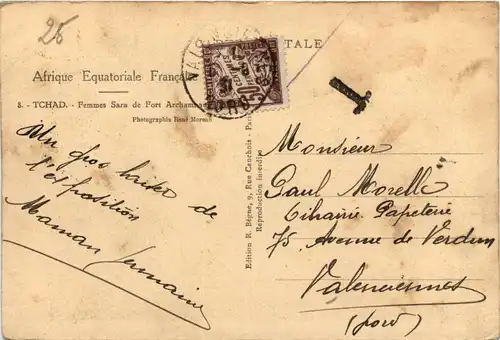 25
TALE
Afrique Equatoriale Française
8. - TCHAD. - Femmes Sara de Fort Archam
Photographie René Moreau
Un gros baiser de
l'exposition
Maman Germaine
Edition R. Bègue, 9, Rue Cauchois - Paris
Reproduction interdite
50
T
Monsieur
Paul Morelle
Librairie Papeterie
75 Avenue de Verdun
Valenciennes
(nord)